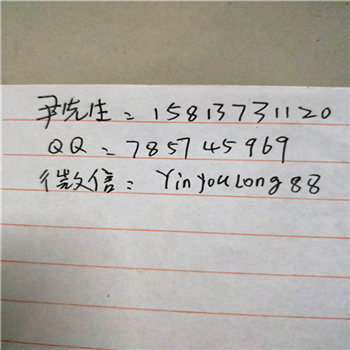 尹先生：15813731120
QQ：785745969
微信：YinyouLong88